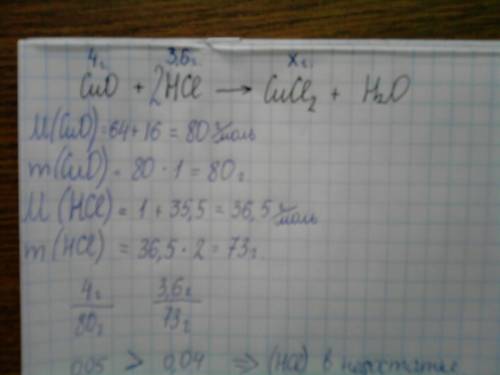 4г 3,6г xг
CuO + 2HCl → CuCl₂ + H₂O
M(CuO) = 64+16 = 80 г/моль
m(CuO) = 80 · 1 = 80г
M(HCl) = 1 + 35,5 = 36,5 г/моль
m(HCl) = 36,5 · 2 = 73г
4г 3,6г
80г 73г
0,05 > 0,04 ⇒ (HCl) в недостатке